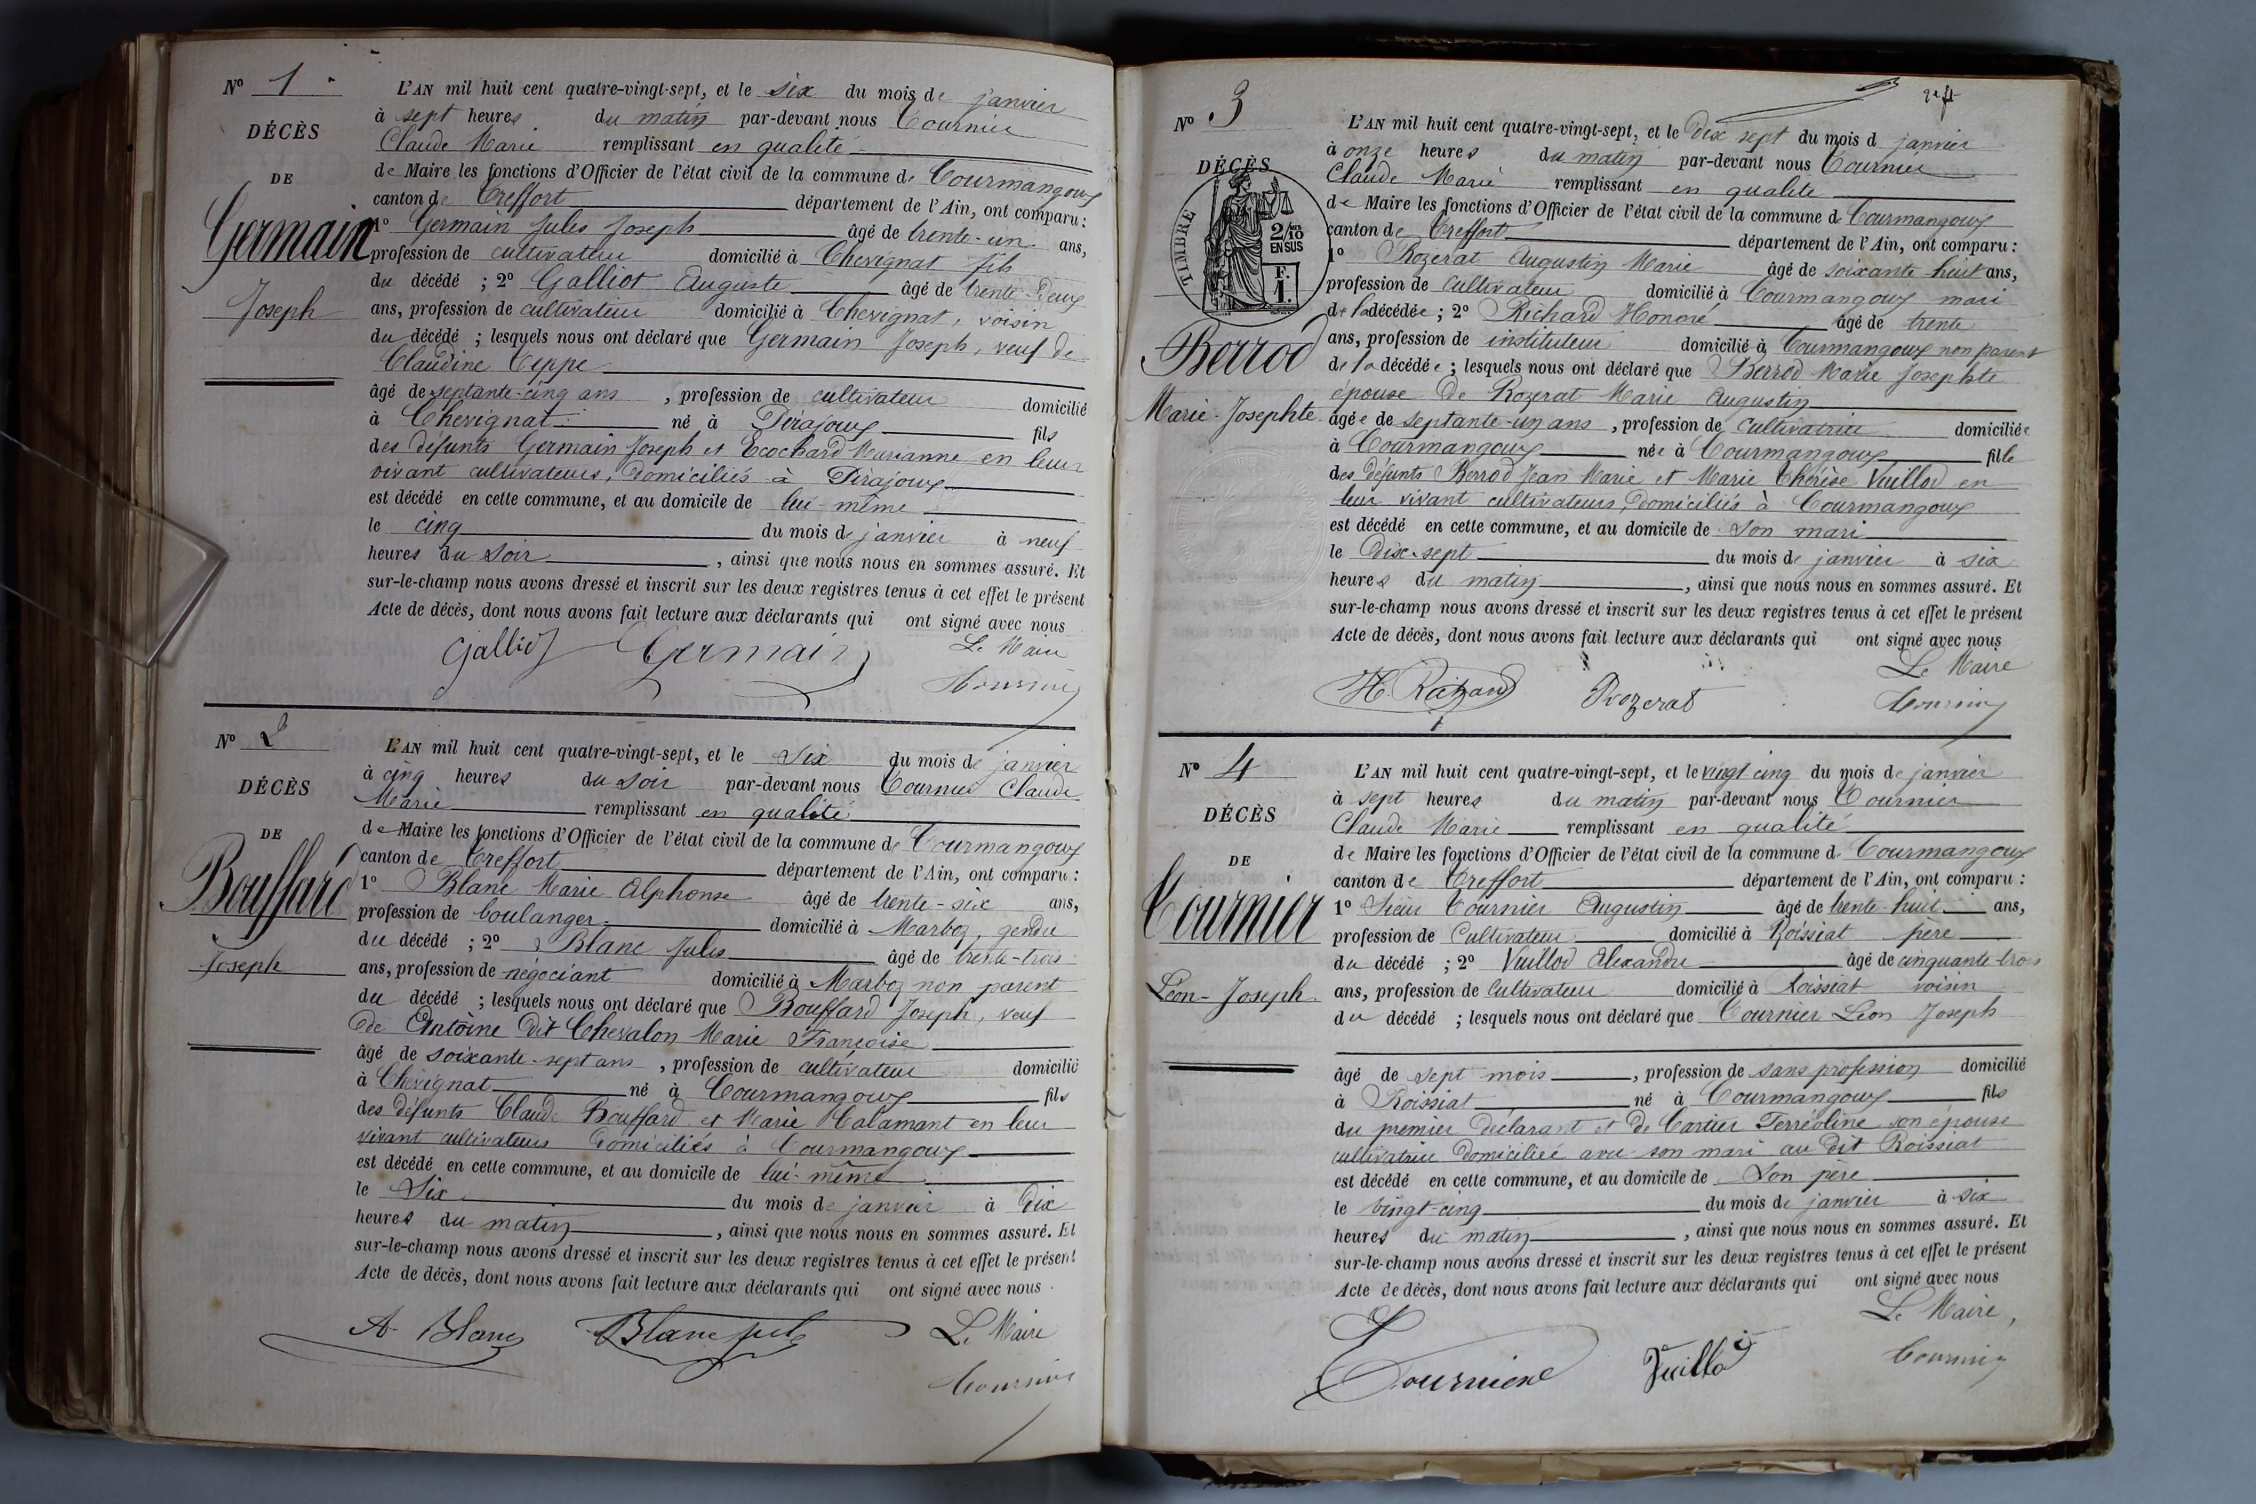 Nº 1
DÉCÈS
DE
Germain
Joseph
L'AN mil huit cent quatre-vingt-sept, et le six du mois de janvier
à sept heures du matin par-devant nous Cournier
Claude Marie remplissant en qualité
de Maire les fonctions d'Officier de l'état civil de la commune de Courmangoux
canton de Treffort département de l'Ain, ont comparu :
1º Germain Jules Joseph âgé de trente-un ans,
profession de cultivateur domicilié à Chevignat fils
du décédé ; 2º Galliot Auguste âgé de trente-deux
ans, profession de cultivateur domicilié à Chevignat, voisin
du décédé ; lesquels nous ont déclaré que Germain Joseph, veuf de
Claudine Ceppe
âgé de septante-cinq ans, profession de cultivateur domicilié
à Chevignat né à Pirajoux fils
des défunts Germain Joseph et Ecochard Marianne en leur
vivant cultivateurs, domiciliés à Pirajoux
est décédé en cette commune, et au domicile de lui-même
le cinq du mois de janvier à neuf
heures du soir, ainsi que nous nous en sommes assuré. Et
sur-le-champ nous avons dressé et inscrit sur les deux registres tenus à cet effet le présent
Acte de décès, dont nous avons fait lecture aux déclarants qui ont signé avec nous
Galliot Germain Le Maire
Cournier
Nº 2
DÉCÈS
DE
Bouffard
Joseph
L'AN mil huit cent quatre-vingt-sept, et le six du mois de janvier
à cinq heures du soir par-devant nous Cournier Claude
Marie remplissant en qualité
de Maire les fonctions d'Officier de l'état civil de la commune de Courmangoux
canton de Treffort département de l'Ain, ont comparu :
1º Blanc Marie Alphonse âgé de trente-six ans,
profession de boulanger domicilié à Marboz, gendre
du décédé ; 2º Blanc Jules âgé de trente-trois
ans, profession de négociant domicilié à Marboz non parent
du décédé ; lesquels nous ont déclaré que Bouffard Joseph, veuf
de Antoine dit Chevalon Marie Françoise
âgé de soixante-sept ans, profession de cultivateur domicilié
à Chevignat né à Courmangoux fils
des défunts Claude Bouffard et Marie Calamant en leur
vivant cultivateurs domiciliés à Courmangoux
est décédé en cette commune, et au domicile de lui-même
le six du mois de janvier à dix
heures du matin, ainsi que nous nous en sommes assuré. Et
sur-le-champ nous avons dressé et inscrit sur les deux registres tenus à cet effet le présent
Acte de décès, dont nous avons fait lecture aux déclarants qui ont signé avec nous.
A. Blanc Blanc Jules Le Maire
Cournier
Nº 3
DÉCÈS
TIMBRE
2/10 EN SUS
F. 1.
Berrod
Marie-Josephte
L'AN mil huit cent quatre-vingt-sept, et le dix sept du mois d janvier
à onze heures du matin par-devant nous Cournier
Claude Marie remplissant en qualité
de Maire les fonctions d'Officier de l'état civil de la commune d Courmangoux
canton de Treffort département de l'Ain, ont comparu :
1º Rozerat Augustin Marie âgé de soixante-huit ans,
profession de cultivateur domicilié à Courmangoux mari
de la décédée ; 2º Richard Honoré âgé de trente
ans, profession de instituteur domicilié à Courmangoux non parent
de la décédée ; lesquels nous ont déclaré que Berrod Marie Josephte
épouse de Rozerat Marie Augustin
âgée de septante-un ans, profession de cultivatrice domiciliée
à Courmangoux née à Courmangoux fille
des défunts Berrod Jean Marie et Marie Thérèse Vuillod en
leur vivant cultivateurs, domiciliés à Courmangoux
est décédé en cette commune, et au domicile de son mari
le dix-sept du mois de janvier à six
heures du matin, ainsi que nous nous en sommes assuré. Et
sur-le-champ nous avons dressé et inscrit sur les deux registres tenus à cet effet le présent
Acte de décès, dont nous avons fait lecture aux déclarants qui ont signé avec nous
Le Maire
H. Richard Rozerat Cournier
Nº 4
DÉCÈS
DE
Cournier
Léon-Joseph
L'AN mil huit cent quatre-vingt-sept, et le vingt cinq du mois de janvier
à sept heures du matin par-devant nous Cournier
Claude Marie remplissant en qualité
de Maire les fonctions d'Officier de l'état civil de la commune d Courmangoux
canton de Treffort département de l'Ain, ont comparu :
1º Sieur Cournier Augustin âgé de trente-huit ans,
profession de Cultivateur domicilié à Roissiat père
du décédé ; 2º Vuillod Alexandre âgé de cinquante-trois
ans, profession de Cultivateur domicilié à Roissiat voisin
du décédé ; lesquels nous ont déclaré que Cournier Léon Joseph
âgé de sept mois, profession de sans profession domicilié
à Roissiat né à Courmangoux fils
du premier déclarant et de Cartier Ferréoline son épouse
cultivatrice domiciliée avec son mari au dit Roissiat
est décédé en cette commune, et au domicile de son père
le vingt-cinq du mois de janvier à six
heures du matin, ainsi que nous nous en sommes assuré. Et
sur-le-champ nous avons dressé et inscrit sur les deux registres tenus à cet effet le présent
Acte de décès, dont nous avons fait lecture aux déclarants qui ont signé avec nous
Le Maire,
Vuillod Cournier